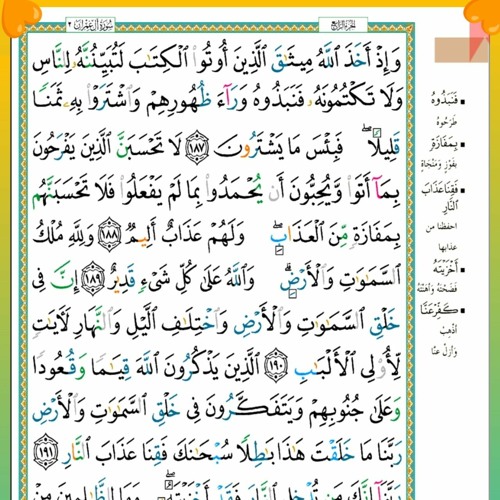 سُورَةُ آلِ عِمْرَان ٣
الجُزءُ الرَّابِعُ
وَإِذْ أَخَذَ ٱللَّهُ مِيثَـٰقَ ٱلَّذِينَ أُوتُوا۟ ٱلْكِتَـٰبَ لَتُبَيِّنُنَّهُۥ لِلنَّاسِ
وَلَا تَكْتُمُونَهُۥ فَنَبَذُوهُ وَرَآءَ ظُهُورِهِمْ وَٱشْتَرَوْا۟ بِهِۦ ثَمَنًا
قَلِيلًا ۖ فَبِئْسَ مَا يَشْتَرُونَ ١٨٧ لَا تَحْسَبَنَّ ٱلَّذِينَ يَفْرَحُونَ
بِمَآ أَتَوا۟ وَّيُحِبُّونَ أَن يُحْمَدُوا۟ بِمَا لَمْ يَفْعَلُوا۟ فَلَا تَحْسَبَنَّهُم
بِمَفَازَةٍ مِّنَ ٱلْعَذَابِ ۖ وَلَهُمْ عَذَابٌ أَلِيمٌ ١٨٨ وَلِلَّهِ مُلْكُ
ٱلسَّمَـٰوَٰتِ وَٱلْأَرْضِ ۗ وَٱللَّهُ عَلَىٰ كُلِّ شَىْءٍ قَدِيرٌ ١٨٩ إِنَّ فِى
خَلْقِ ٱلسَّمَـٰوَٰتِ وَٱلْأَرْضِ وَٱخْتِلَـٰفِ ٱلَّيْلِ وَٱلنَّهَارِ لَـَٔايَـٰتٍ
لِّأُو۟لِى ٱلْأَلْبَـٰبِ ١٩٠ ٱلَّذِينَ يَذْكُرُونَ ٱللَّهَ قِيَـٰمًا وَقُعُودًا
وَعَلَىٰ جُنُوبِهِمْ وَيَتَفَكَّرُونَ فِى خَلْقِ ٱلسَّمَـٰوَٰتِ وَٱلْأَرْضِ
رَبَّنَا مَا خَلَقْتَ هَـٰذَا بَـٰطِلًا سُبْحَـٰنَكَ فَقِنَا عَذَابَ ٱلنَّارِ ١٩١
رَبَّنَآ إِنَّكَ مَن تُدْخِلِ ٱلنَّارَ فَقَدْ أَخْزَيْتَهُۥ ۖ وَمَا لِلظَّـٰلِمِينَ مِنْ
■ فَنَبَذُوهُ
طَرَحُوهُ
■ بِمَفَازَةٍ
بِفَوْزٍ وَمَنْجَاةٍ
■ فَقِنَا عَذَابَ
ٱلنَّارِ
احفظنا من
عذابها
■ أَخْزَيْتَهُۥ
فَضَحْتَهُ وَأَهَنْتَهُ
■ كَفِّرْ عَنَّا
أَذْهِبْ
وَأَزِلْ عَنَّا